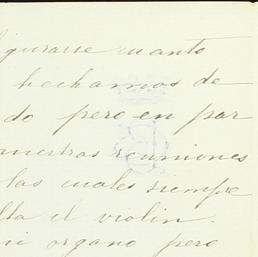 gurarse cuanto
hechamos de
do pero en par
nuestras reuniones
las cuales siempre
lta el violin.
mi organo pero